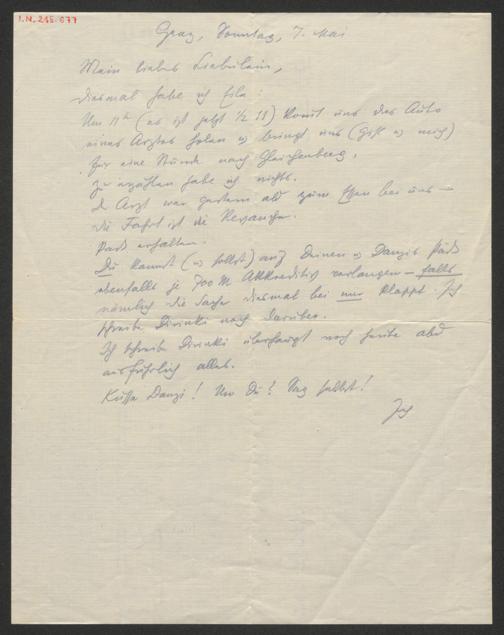 I.N. 215.677
Graz, Sonntag, 7. Mai
Mein liebes
diesmal habe ich Eile:
Um 11h (es ist jetzt ½ 11) kommt uns das Auto
eines Arztes holen u bringt uns (Giss u mich)
für eine Stunde nach Gleichenberg.
Zu erzählen habe ich nichts.
D Arzt war gestern abd zum Essen bei uns –
die Fahrt ist die Revanche.
Pass erhalten.
Du kannst (u sollst) auf Deinen u Danzis Pass
ebenfalls je 700 M Akkreditiv verlangen – falls
nämlich die Sache diesmal bei mir klappt. Ich
schreibe noch darüber.
Ich schreibe überhaupt noch heute abd
ausführlich alles.
Küsse Danzi! Un Du? Sag selbst!
Ich